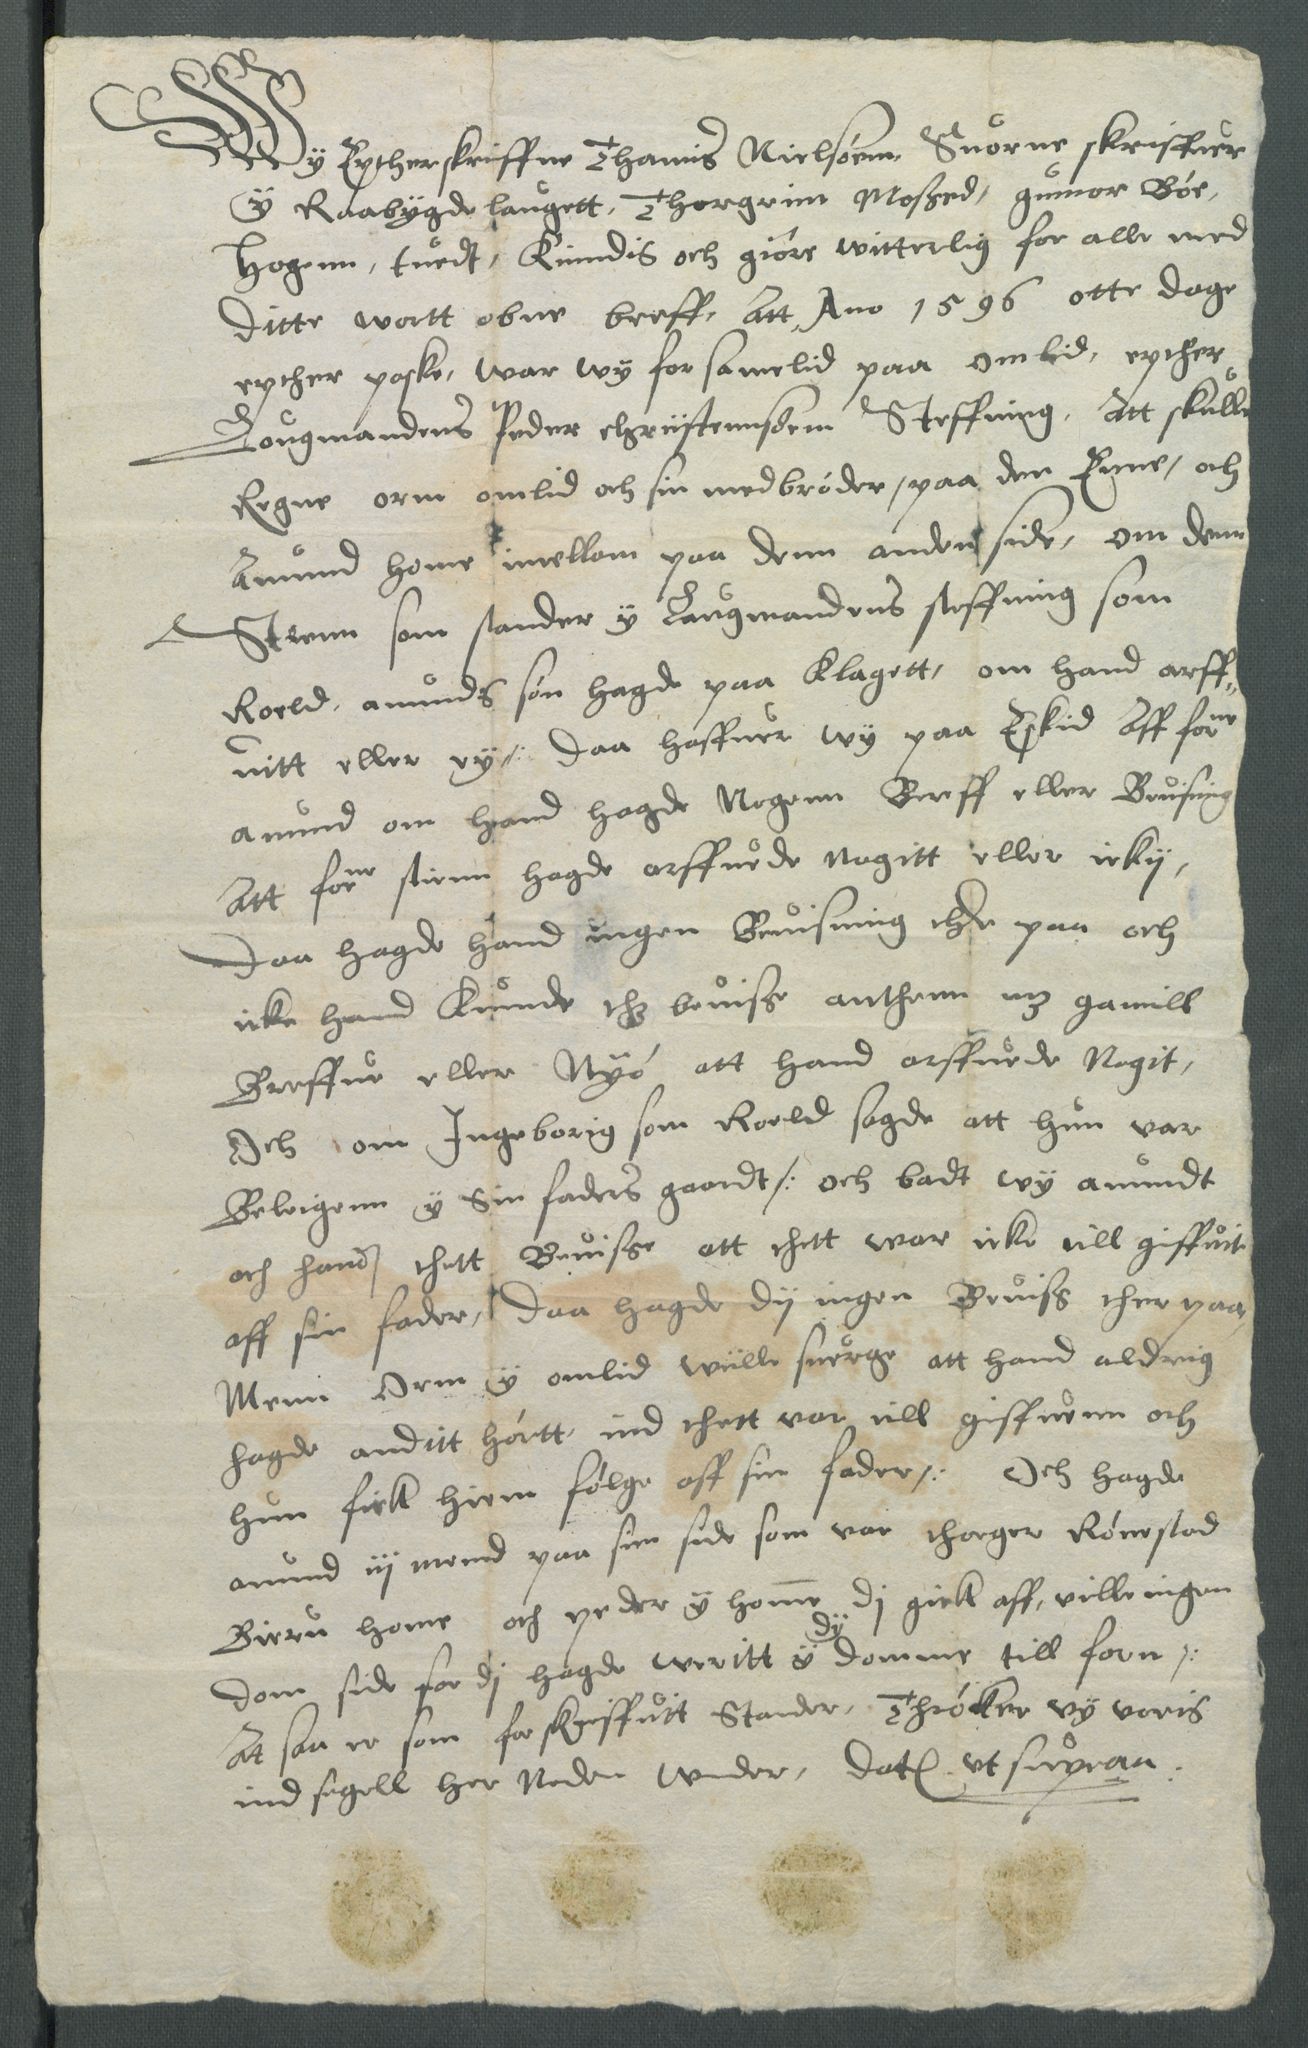 Wy Epther skriffne Thamis Nielsøenn Suorne skriffuer
y Raabygdelaugett, Thorgrim Mosßed, gunnor Bøe,
Hogenn, tuedt, Kiendis och giøre witterlig for alle med
ditte wortt obne breff, Att Ano 1596 otte dage
epther poske, war wy forsamelid paa omlid, epther
Lougmandens Peder christennsøenn Steffning, Att skulle
Regne orm omlid och sin medbrøder, paa den Enne, och
Amund home imellom paa denn anden side, om denn
Stienn som stander y Laugmandens steffning som
Roeld, amunds søn hagde paa Klagett, om hand arff-
uitt eller ey, daa haffuer wy paa Eskid Aff forne
amund om hand hagde Nogenn Breff eller Beuisning
Att forne stienn hagde arffuede nogitt eller icky,
daa hagde hand ingen Beuisning ther paa och
icke hand Kunde thz beuisse anthenn mz gamill
Breffue eller Nyø att hand arffuede Nogit,
Och om Ingeborig som Roeld sagde att hun var
Beleigenn y Sin faders gaardt, och badt wy amundt
och hans thett Beuisse att thett war icke till giffuit
aff sin fader, Daa hagde dy ingen Beuiss ther paa,
Menn Orm y omlid wille suerge att hand aldrig
hagde anditt hørtt, ind thett var till giffuenn och
hun fick hiem følge aff sin fader, Och hagde
amund iij mend paa sin side som var thorger Rønestad
Biørn home och peder y home dj gick aff, ville ingen
dom side for dj hagde weritt y dy domme till forn,
At saa er som forskreffuit Stander, Thrøcker wy voris
ind segell her Neden Wnder, Datt vt supraa